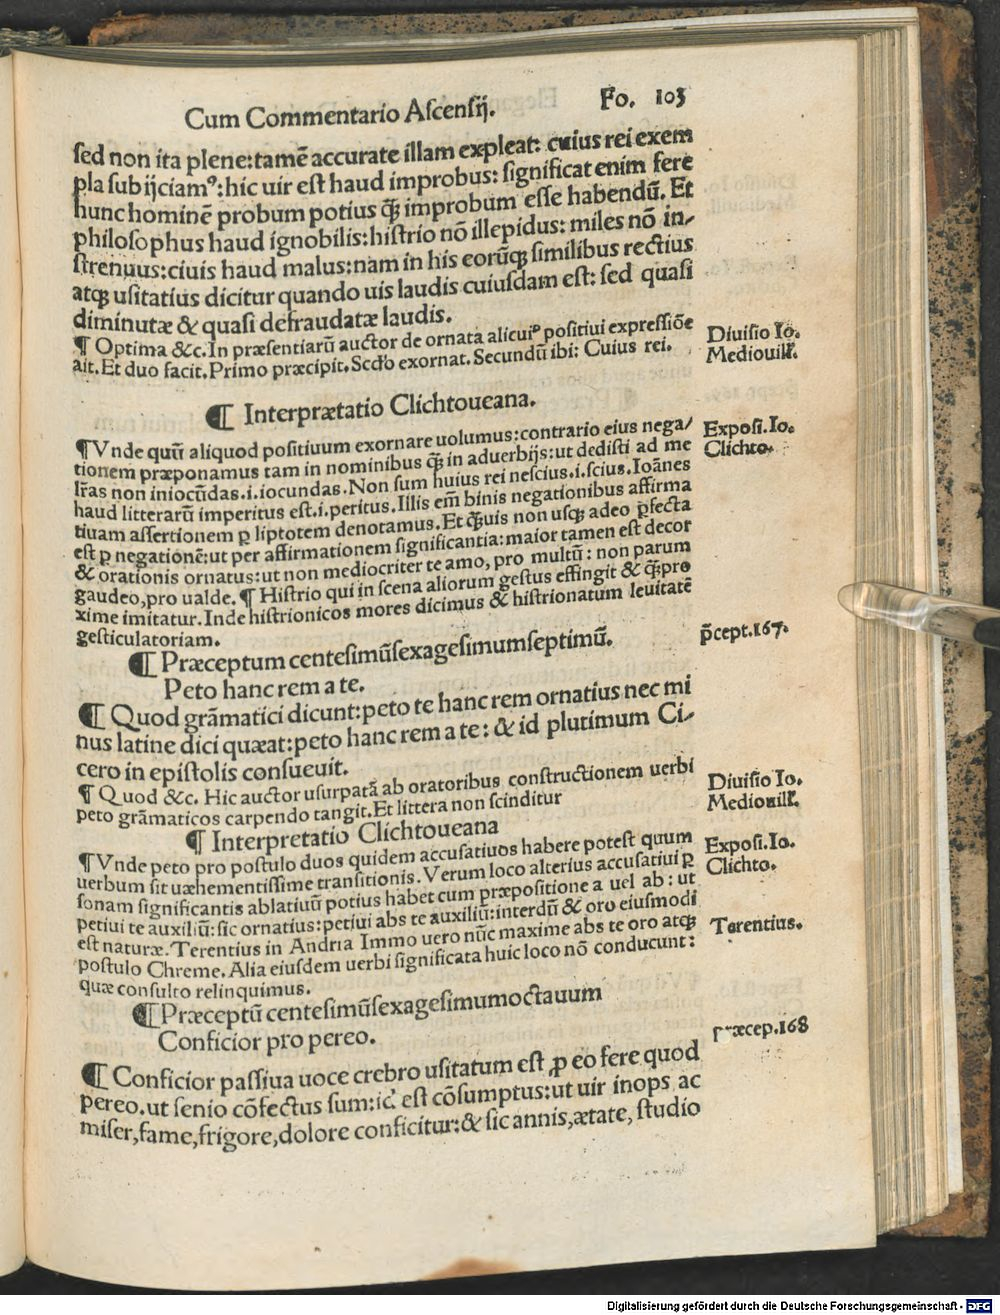 Cum Commentario Aſcenſij. Fo. 103
ſed non ita plene:tamē accurate illam expleat: cuius rei exem
pla ſubijciamꝰ:hic uir eſt haud improbus: ſignificat enim fere
hunc hominē probum potius q̄ꝫ improbum eſſe habendū. Et
philoſophus haud ignobilis:hiſtrio nō illepidus: miles nō in⸗
ſtrenuus:ciuis haud malus:nam in his eorūqꝫ ſimilibus rectius
atqꝫ uſitatius dicitur quando uis laudis cuiuſdam eſt: ſed quaſi
diminutæ & quaſi defraudatæ laudis.
¶ Optima &c.In præſentiarū auctor de ornata alicuiꝰ poſitiui expreſſiōe
ait.Et duo facit.Primo præcipit.Scdo exornat.Secundū ibi: Cuius rei.
Diuiſio Io.
Mediouill.
¶ Interprætatio Clichtoueana.
¶Vnde quū aliquod poſitiuum exornare uolumus:contrario eius nega⸗
tionem præponamus tam in nominibus q̄ꝫ in aduerbijs:ut dediſti ad me
lr̄as non iniocūdas.i.iocundas.Non ſum huius rei neſcius.i.ſcius.Ioānes
haud litterarū imperitus eſt.i.peritus.Illis em̄ binis negationibus affirma
tiuam aſſertionem ꝑ liptotem denotamus.Et q̄ꝫuis non uſqꝫ adeo ꝑfecta
eſt ꝑ negationē:ut per affirmationem ſignificantia:maior tamen eſt decor
& orationis ornatus:ut non mediocriter te amo, pro multū : non parum
gaudeo,pro ualde.¶ Hiſtrio qui in ſcena aliorum geſtus effingit & q̄ꝫpro
xime imitatur.Inde hiſtrionicos mores dicimus & hiſtrionatum leuitatē
geſticulatoriam.
Expoſi.Io.
Clichto.
¶ Præceptum centeſimūſexageſimumſeptimū.
Peto hanc rem a te.
p̄cept.167.
¶ Quod grāmatici dicunt:peto te hanc rem ornatius nec mi
nus latine dici quæat:peto hanc rem a te: & id plutimum Ci⸗
cero in epiſtolis conſueuit.
¶ Quod &c. Hic auctor uſurpatā ab oratoribus conſtructionem uerbi
peto grāmaticos carpendo tangit.Et littera non ſcinditur
Diuiſio Io.
Mediouill.
¶ Interpretatio Clichtoueana
¶Vnde peto pro poſtulo duos quidem accuſatiuos habere poteſt quum
uerbum ſit uæhementiſſime tranſitionis.Verum loco alterius accuſatiui ꝑ
ſonam ſignificantis ablatiuū potius habet cum præpoſitione a uel ab : ut
petiui te auxiliū: ſic ornatius:petiui abs te auxiliū:interdū & oro eiuſmodi
eſt naturæ.Terentius in Andria Immo uero nūc maxime abs te oro atqꝫ
poſtulo Chreme.Alia eiuſdem uerbi ſignificata huic loco nō conducunt:
quæ conſulto relinquimus.
Expoſi.Io.
Clichto.
Terentius.
¶Præceptū centeſimūſexageſimumoctauum
Conficior pro pereo.
præcep.168
¶ Conficior paſſiua uoce crebro uſitatum eſt ꝓ eo fere quod
pereo.ut ſenio cōfectus ſum:id eſt cōſumptus:ut uir inops ac
miſer,fame,frigore,dolore conficitur:& ſic annis,ætate, ſtudio
Digitalisierung gefördert durch die Deutsche Forschungsgemeinschaft - DFG